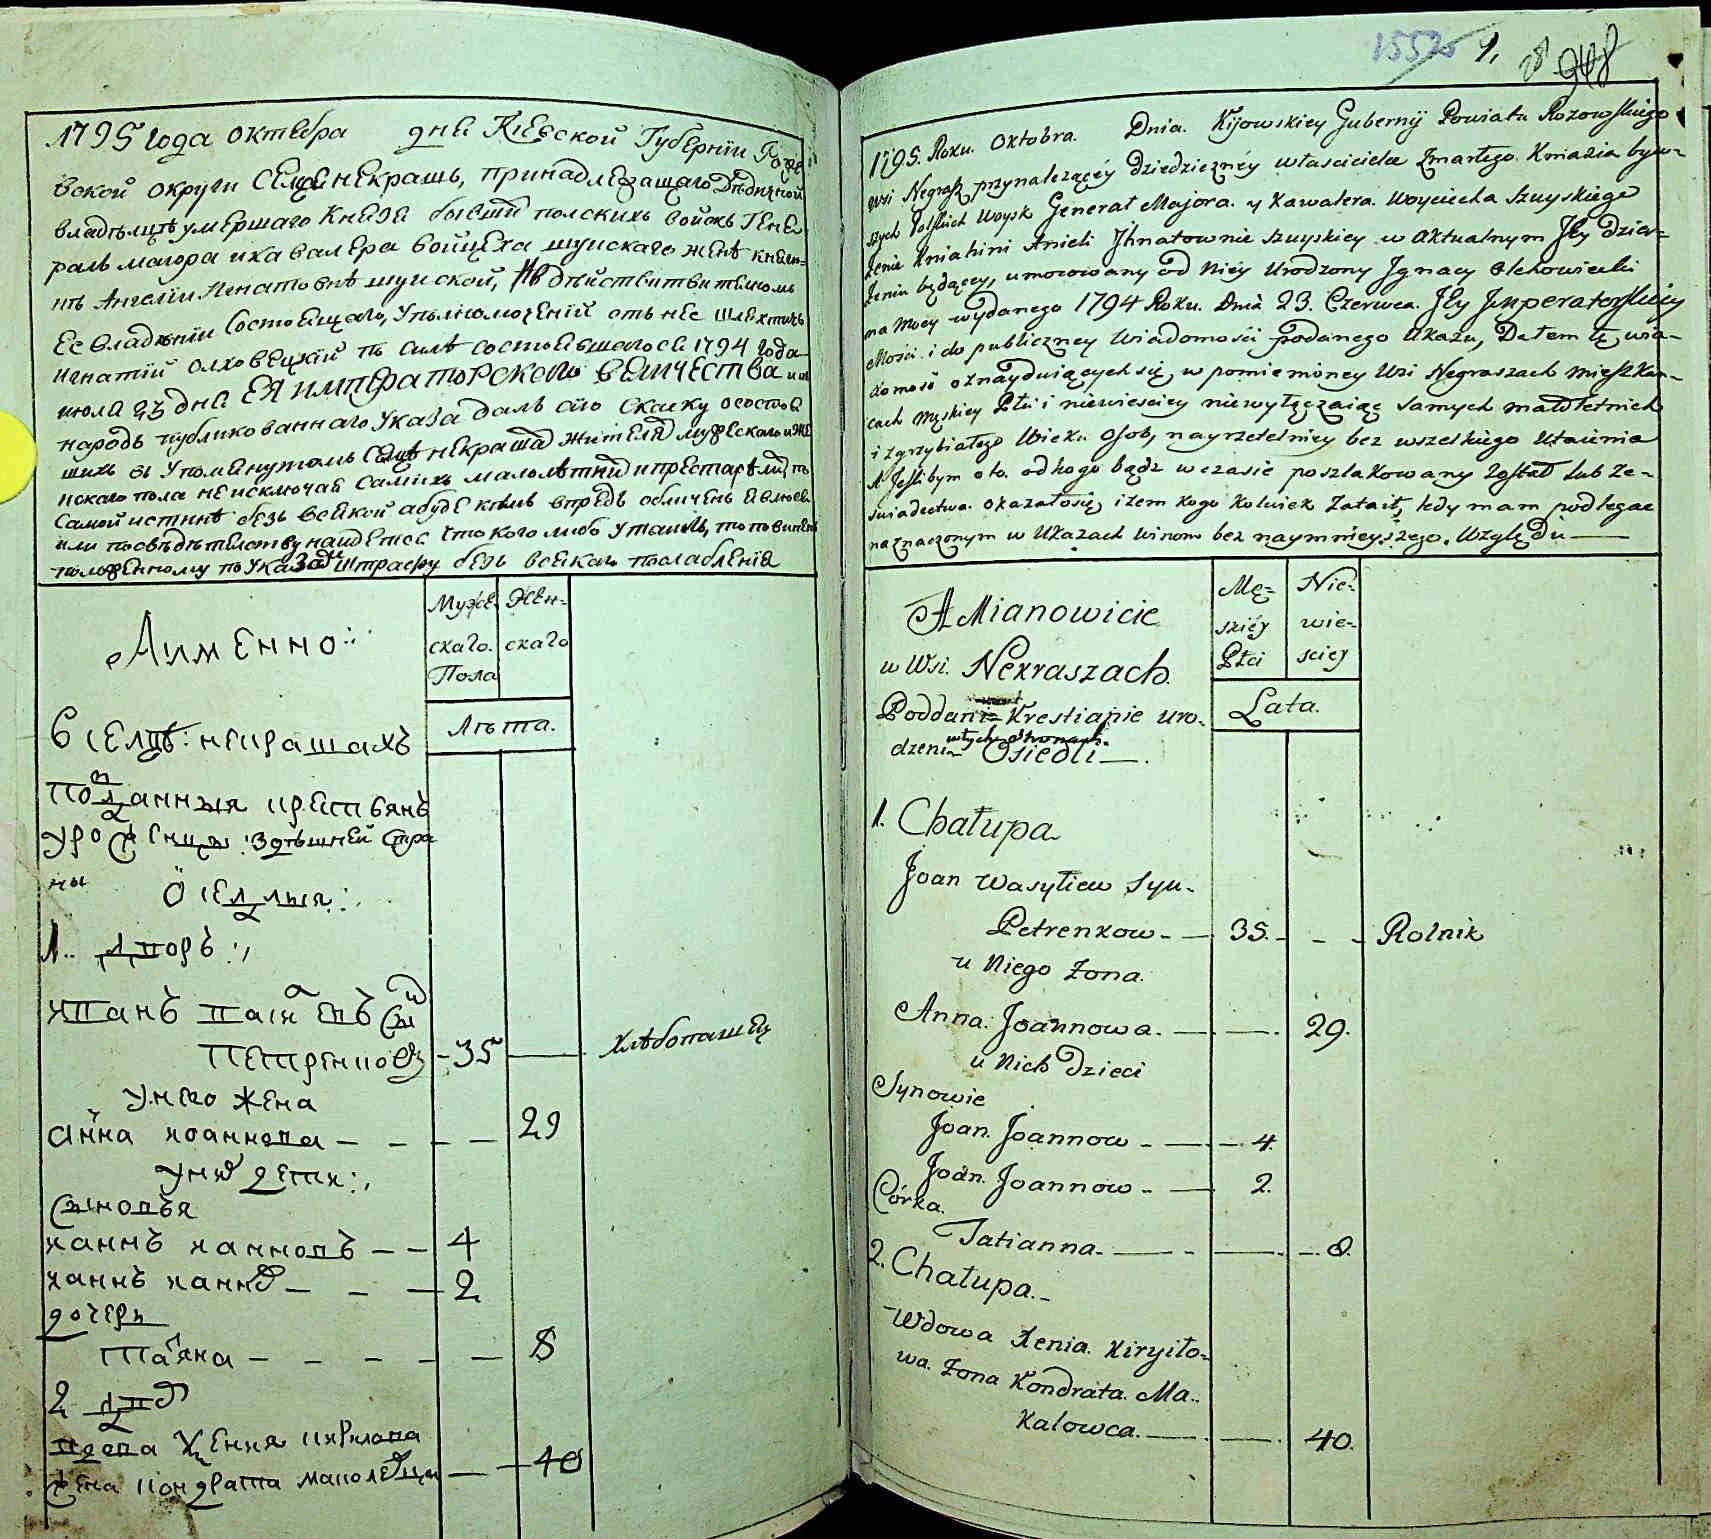 1795 года октебра дне Киевской Губернии
вской округи селце некрашъ, принадлежащаго Дѣдичной
владѣлцѣ умершаго Князе бывши полскихъ войскъ Гене
ралъ маиора и кавалера войцеха шуискаго женѣ кнеги=
нѣ Ангелии Игнатовнѣ шуиской, в дѣиствителномъ
ее владѣнии состоещаго, уполномочений отъ нее шлехтичъ
игнатий олховецкий по силѣ состоевшагося 1794 года
июла 23 дне ЕЯ императорскаго величества и въ
народъ публикованнаго указа далъ сию скаску о состоя
щихъ въ упоменутомъ селцѣ некраша жителя мужескаго и же
нскаго пола не исключае самихъ малолѣтний и престарѣлий по
самой истинѣ безъ всекой а буде кѣмъ впредь обличенъ
или по свѣдѣтелству наидетсе что кого либо утаилъ, то повиненъ
положенному по указамъ штрафу безъ всекаго послабления
Аименно:
Муже=
скаго.
Пола
Жен=
скаго
Лѣта.
в селцѣ: некрашахъ
подданныя крестьянъ
урожденци здѣшней стра
ны оседлыя:
1.. дворъ:
иванъ васи евъ син
петренковъ - 35 хлѣбопашец
у него жена
анна иоаннова - - - - 29
у них дети:
сыновья
ианнъ ианновъ - - 4
ианнъ ианно - - - 2
дочери
татяна - - - - - 8
2 двор
вдова ксения кирилова
жена кондрата маковецка - - 40
15525 1. 28 948
1795. Roku. Oktobra. Dnia. Kijowskiey Gubernij Powiatu Rozowskiego
wsi Negrasz przynalezącéy dziedziczney własciciela Zmarłego Kniazia byw=
szych Polskich Woysk Generał Majora. y Kawalera. Woyciecha Szuyskiego
Zenie Kniahini Anieli Jhnatownie szuyskiey w aktualnym Jey Dzier=
Zeniu będącey, umocowany od Niey Urodzony Jgnacy Olchowiecki
na Mocy wydanego 1794 Roku. Dnia 23. Czerwca. Jey Jmperatorskiey
Mości i do publiczney wiadomości podanego Ukazu, Datem tę wia=
domość oznaydujących się w pomienioney Wsi Negraszach mieszkan=
cach męskiey Płci i niewiesciey niewyłączaiąc samych małoletnich
i zgrzybiałego Wieku Osob, nayrzetelniey bez wszelkiego Utaienia
A Jeslibym oto. od kogo bądz w czasie poszlakowany został lub ze=
swiadectwa. okazałosię, izem kogo kolwiek Zataił, tedy mam podlegac
naznaczonym w Ukazach winom bez naymnieyszego. Względu —
A Mianowicie
w Wsi. Nekraszach.
Mę=
skiéy
Płci
Nie=
wie=
sciey
Lata.
Poddani= Krestianie uro=
wtych stronach.
dzeni Osiedli —.
1. Chałupa
Joan Wasyliew Syn.
Petrenkow - — 35. - - - Rolnik
u Niego Zona.
Anna. Joannowa. — — 29.
u Nich Dzieci
Synowie
Joan. Joannow - — - 4.
Joan. Joannow - — 2.
Córka.
Tatianna. — - — - 8.
2. Chałupa. -
Wdowa Xenia. Kiryiło=
wa. Zona Kondrata. Ma..
kalowca. — — 40.